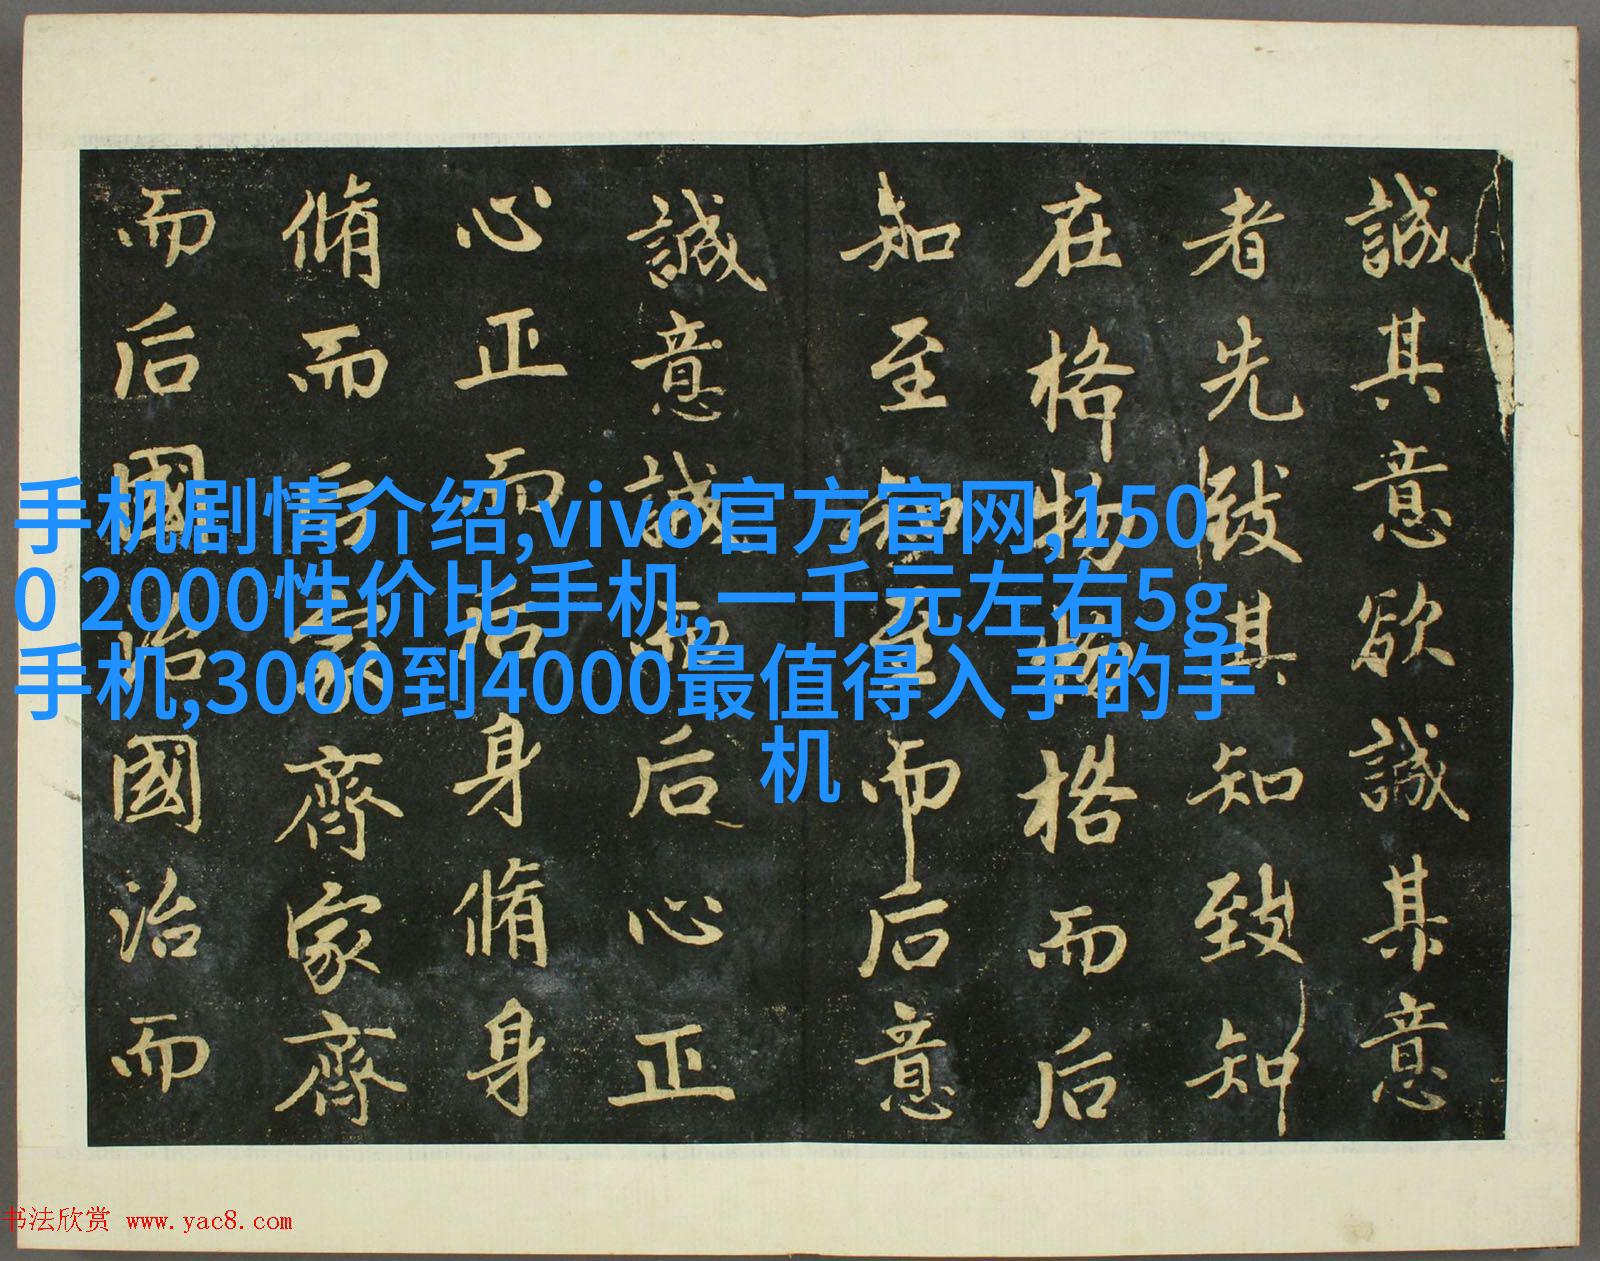 誠其意欲誠其意
者先致其知致知
在格物物格而后
知至知至而后意
誠意誠而后心正
心正而后身脩身
脩而后家齊家齊
而后國治國治而
手机剧情介绍,vivo官方官网,150
0 2000性价比手机,一千元左右5g
手机,3000到4000最值得入手的手
机
书法欣赏 www.yac8.com